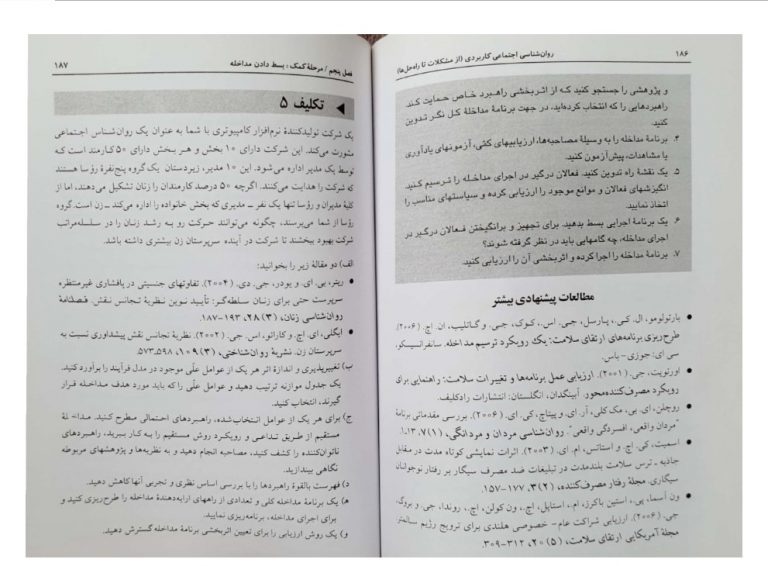 ۱۸۶ روان‌شناسی اجتماعی کاربردی (از مشکلات تا راه‌حل‌ها)
و پژوهشی را جستجو کنید که از اثربخشی راهبرد خاص حمایت کند
راهبردهایی را که انتخاب کرده‌اید، در جهت برنامهٔ مداخلهٔ کل نگر تدوین
کنید.
۴. برنامهٔ مداخله را به وسیلهٔ مصاحبه‌ها، ارزیابیهای کتبی، آزمونهای یادآوری
یا مشاهدات، پیش‌آزمون کنید.
۵. یک نقشهٔ راه تدوین کنید. فعالان درگیر در اجرای مداخله را ترسیم کنید.
انگیزشهای فعالان و موانع موجود را ارزیابی کرده و سیاستهای مناسب را
اتخاذ نمایید.
۶. یک برنامهٔ اجرایی بسط بدهید. برای تجهیز و برانگیختن فعالان درگیر در
اجرای مداخله، چه گامهایی باید در نظر گرفته شوند؟
۷. برنامهٔ مداخله را اجرا کرده و اثربخشی آن را ارزیابی کنید.
مطالعات پیشنهادی بیشتر
بارتولومو، ال. کی.، پارسل، جی. اس.، کوک، جی. و گاتلیب، ان. اچ. (۲۰۰۶).
طرح‌ریزی برنامه‌های ارتقای سلامت: یک رویکرد ترسیم مداخله. سانفرانسیسکو،
سی ای: جوزی-باس.
اورتویت، جی. (۲۰۰۱). ارزیابی عمل برنامه‌ها و تغییرات سلامت: راهنمایی برای
رویکرد مصرف‌کننده‌محور. آبینگدان، انگلستان: انتشارات رادکلیف.
روچلن، ای. بی. مک کلی، آر. ای. و پیتاچ، کی. ای. (۲۰۰۶). بررسی مقدماتی برنامهٔ
"مردان واقعی، افسردگی واقعی". روان‌شناسی مردان و مردانگی، ۷(۱)،
اسمیت، کی. اچ. و استاتس، ام. ای. (۲۰۰۳). اثرات نمایشی کوتاه مدت در مقابل
جاذبه ـ ترس سلامت بلندمدت در تبلیغات ضد مصرف سیگار بر رفتار نوجوانان
سیگاری. مجلهٔ رفتار مصرف‌کننده، ۲(۳)، ۱۷۷-۱۵۷.
ون آسما، پی.، استین باکرز، ام.، استاپل، اچ.، ون کولن، اچ.، روندا، جی. و بروگ،
جی. (۲۰۰۶). ارزیابی شراکت عام ـ خصوصی هلندی برای ترویج رژیم سالمتر.
مجلهٔ آمریکایی ارتقای سلامت، ۲۰(۵)، ۳۱۲-۳۰۹.
فصل پنجم / مرحلهٔ کمک: بسط دادن مداخله ۱۸۷
تکلیف ۵
یک شرکت تولیدکنندهٔ نرم‌افزار کامپیوتری با شما به عنوان یک روان‌شناس اجتماعی
مشورت می‌کند. این شرکت دارای ۱۰ بخش و هر بخش دارای ۵۰ کارمند است که
توسط یک مدیر اداره می‌شود. این ۱۰ مدیر، زیردستان یک گروه پنج‌نفرهٔ رؤسا هستند
که شرکت را هدایت می‌کنند. اگرچه ۵۰ درصد کارمندان را زنان تشکیل می‌دهند، اما از
کلیهٔ مدیران و رؤسا تنها یک نفر ـ مدیری که بخش خانواده را اداره می‌کند ـ زن است. گروه
رؤسا از شما می‌پرسند، چگونه می‌توانند حرکت رو به رشد زنان را در سلسله‌مراتب
شرکت بهبود بخشند تا شرکت در آینده سرپرستان زن بیشتری داشته باشد.
الف) دو مقالهٔ زیر را بخوانید:
ریتر، بی. ای. و یودر، جی. دی. (۲۰۰۴). تفاوتهای جنسیتی در پافشاری غیرمنتظره
سرپرست حتی برای زنان سلطه‌گر: تأیید نوین نظریهٔ تجانس نقش. فصلنامهٔ
روان‌شناسی زنان، ۲۸(۳)، ۱۹۳-۱۸۷.
ایگلی، ای. اچ. و کارائو، اس. جی. (۲۰۰۲). نظریهٔ تجانس نقش پیشداوری نسبت به
سرپرستان زن. نشریهٔ روان‌شناختی، ۱۰۹(۳)، ۵۹۸-۵۷۳.
ب) تغییرپذیری و اندازهٔ اثر هر یک از عوامل علّی موجود در مدل فرآیند را برآورد کنید.
یک جدول موازنه ترتیب دهید و عوامل علّی را که باید مورد هدف مداخله قرار
گیرند، انتخاب کنید.
ج) برای هر یک از عوامل انتخاب‌شده، راهبردهای احتمالی مطرح کنید. مداخلهٔ
مستقیم از طریق تداعی و رویکرد روش مستقیم را به کار ببرید، راهبردهای
ناتوان‌کننده را کشف کنید، مصاحبه انجام دهید و به نظریه‌ها و پژوهشهای مربوطه
نگاهی بیندازید.
د) فهرست بالقوهٔ راهبردها را با بررسی اساس نظری و تجربی آنها کاهش دهید.
ه) یک برنامهٔ مداخلهٔ کلی و تعدادی از راههای ارایه‌دهندهٔ مداخله را طرح‌ریزی کنید و
برای اجرای مداخله، برنامه‌ریزی نمایید.
و) یک روش ارزیابی را برای تعیین اثربخشی برنامهٔ مداخله گسترش دهید.